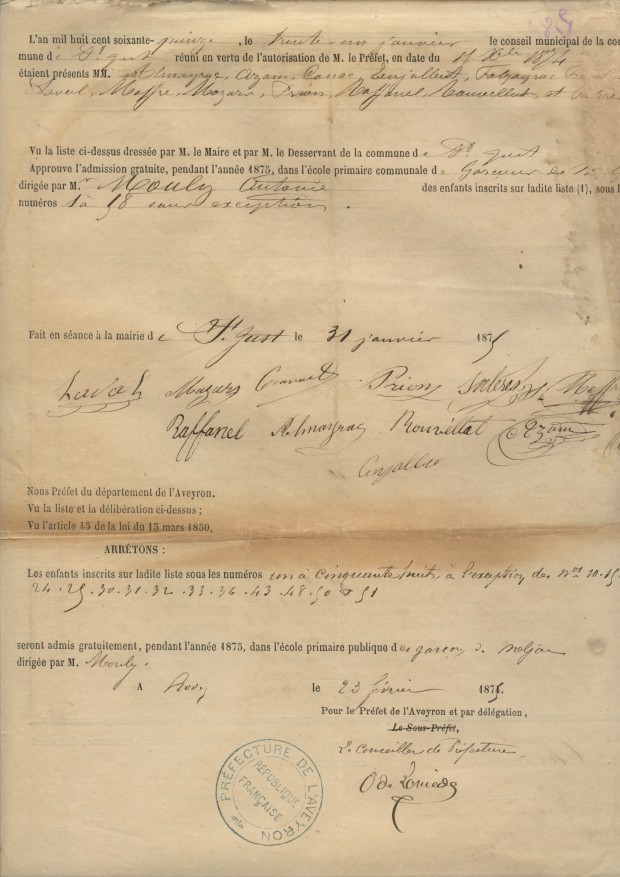 59
L'an mil huit cent soixante-quinze, le trente un janvier le conseil municipal de la com
mune de St Just réuni en vertu de l'autorisation de M. le Préfet, en date du 1874
étaient présents MM. Almayrac, Azam,
Laval, Maffre, Mazars, Prion, Raffanel, et
Vu la liste ci-dessus dressée par M. le Maire et par M. le Desservant de la commune de St Just
Approuve l'admission gratuite, pendant l'année 1875, dans l'école primaire communale de
dirigée par Mr Mouly Antoine des enfants inscrits sur ladite liste (1), sous l
numéros 1 à 58 sans exception.
Fait en séance à la mairie de St Just le 31 janvier 1875
Laval Mazars Prion Maffre
Raffanel Almayrac Rouvellat Azam
Nous Préfet du département de l'Aveyron,
Vu la liste et la délibération ci-dessus ;
Vu l'article 45 de la loi du 15 mars 1850,
ARRÊTONS :
Les enfants inscrits sur ladite liste sous les numéros un à cinquante huit, à l'exception des nos 10.
24. 25. 30. 31. 32. 33. 36. 43. 48. 50 & 51
seront admis gratuitement, pendant l'année 1875, dans l'école primaire publique de garçons de
dirigée par M. Mouly.
A Rodez le 23 février 1875.
Pour le Préfet de l'Aveyron et par délégation,
Le Sous-Préfet,
Le Conseiller de Préfecture
PRÉFECTURE DE L'AVEYRON
RÉPUBLIQUE
FRANÇAISE